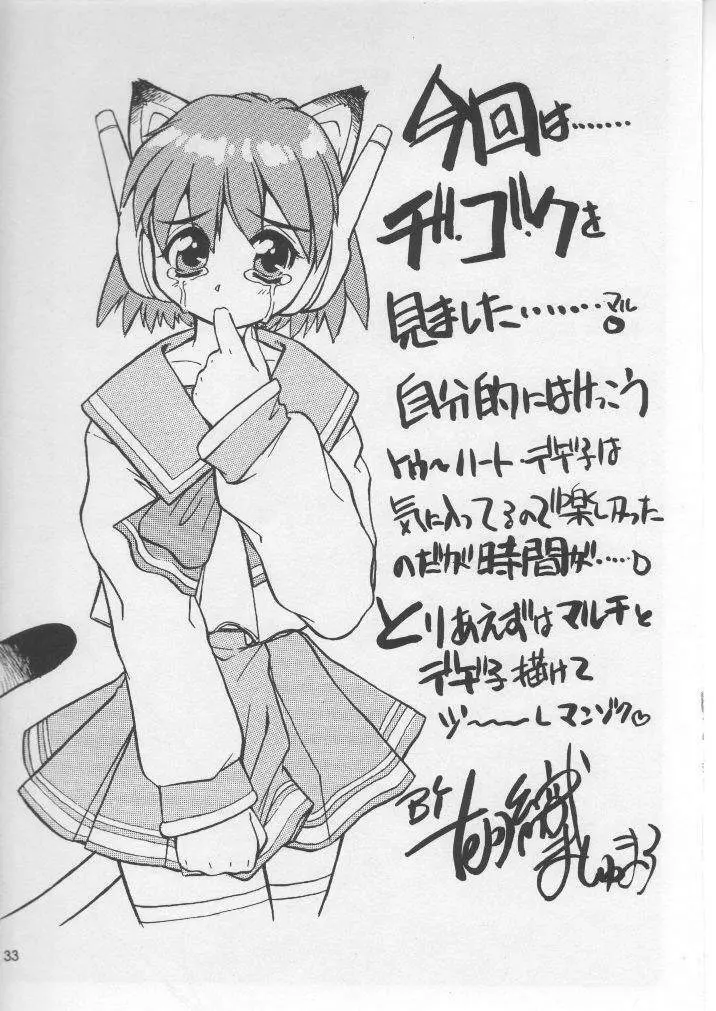 今回は……
デ・ゴ・クを
見ました……マル。
自分的にはけっこう
トゥ〜ハート デギ子は
気に入ってるので楽しかった
のだが時間が……。
とりあえずはマルチと
デギ子描けて
ヅ〜〜しマンゾク♡
BY
ましゅまろ
33